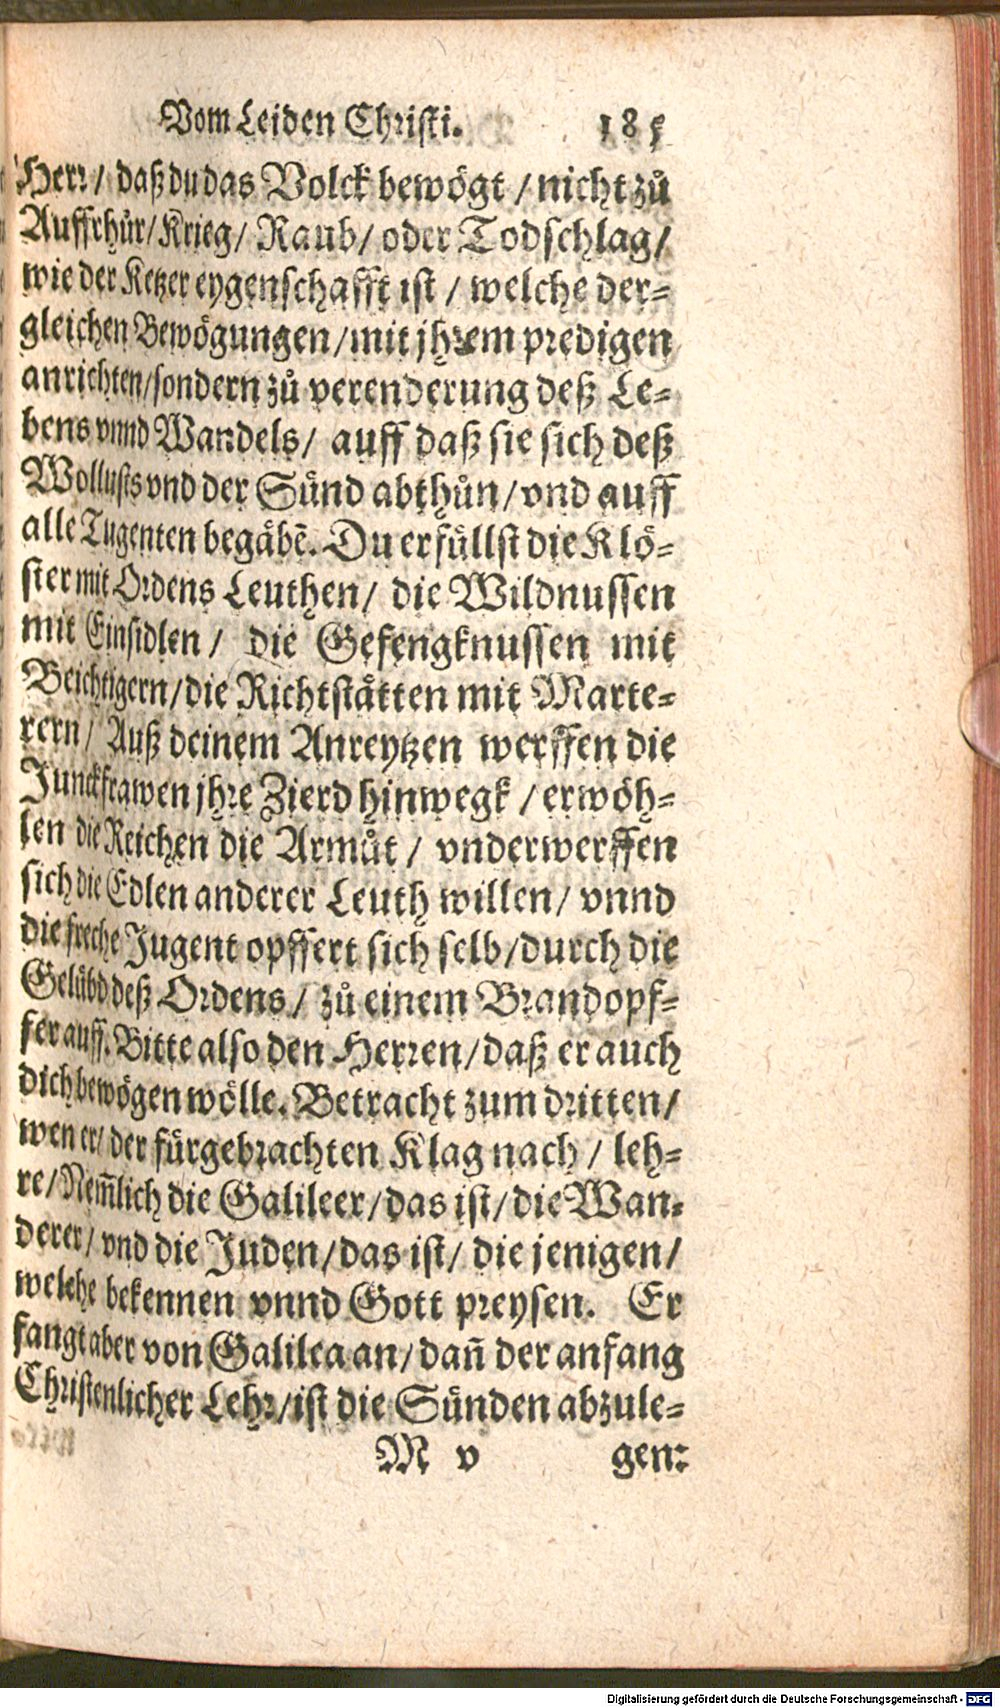 Vom Leiden Christi. 185
Herr / daß du das Volck bewögt / nicht zů
Auffrhůr / Krieg / Raub / oder Todschlag /
wie der Ketzer eygenschafft ist / welche der⸗
gleichen Bewögungen / mit jhrem predigen
anrichten / sondern zů verenderung deß Le⸗
bens vnnd Wandels / auff daß sie sich deß
Wollusts vnd der Sünd abthůn / vnd auff
alle Tugenten begäbē. Du erfüllst die Klö⸗
ster mit Ordens Leuthen / die Wildnussen
mit Einsidlen / die Gefengknussen mit
Beichtigern / die Richtstätten mit Marte⸗
rern / Auß deinem Anreytzen werffen die
Junckfrawen jhre Zierd hinwegk / erwöh⸗
len die Reichen die Armůt / vnderwerffen
sich die Edlen anderer Leuth willen / vnnd
die freche Jugent opffert sich selb / durch die
Gelübd deß Ordens / zů einem Brandopf⸗
fer auff. Bitte also den Herren / daß er auch
dich bewögen wölle. Betracht zum dritten /
wen er / der fürgebrachten Klag nach / leh⸗
re / Nem̄lich die Galileer / das ist / die Wan⸗
derer / vnd die Juden / das ist / die jenigen /
welche bekennen vnnd Gott preysen. Er
fangt aber von Galilea an / dan̄ der anfang
Christenlicher Lehr / ist die Sünden abzule⸗
M v gen:
Digitalisierung gefördert durch die Deutsche Forschungsgemeinschaft - DFG